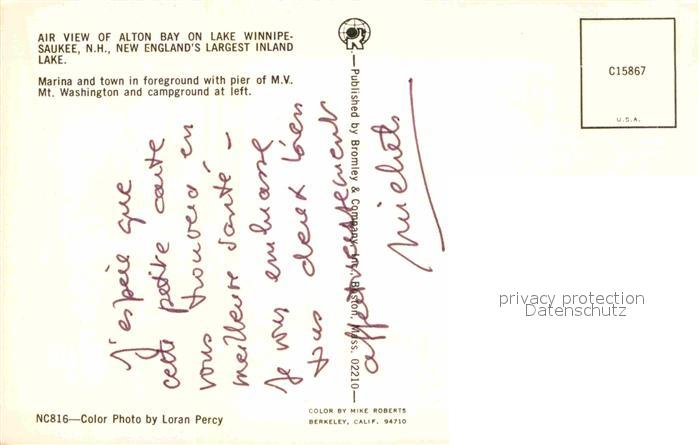 AIR VIEW OF ALTON BAY ON LAKE WINNIPE-
SAUKEE, N.H., NEW ENGLAND'S LARGEST INLAND
LAKE.
Marina and town in foreground with pier of M.V.
Mt. Washington and campground at left.
J'espère que
cette petite carte
vous trouvera en
meilleure santé -
Je vous embrasse
tous deux bien
affectueusement
Published by Bromley & Company, Inc., Boston, Mass. 02210
C15867
U.S.A.
privacy protection
Datenschutz
NC816—Color Photo by Loran Percy
COLOR BY MIKE ROBERTS
BERKELEY, CALIF. 94710